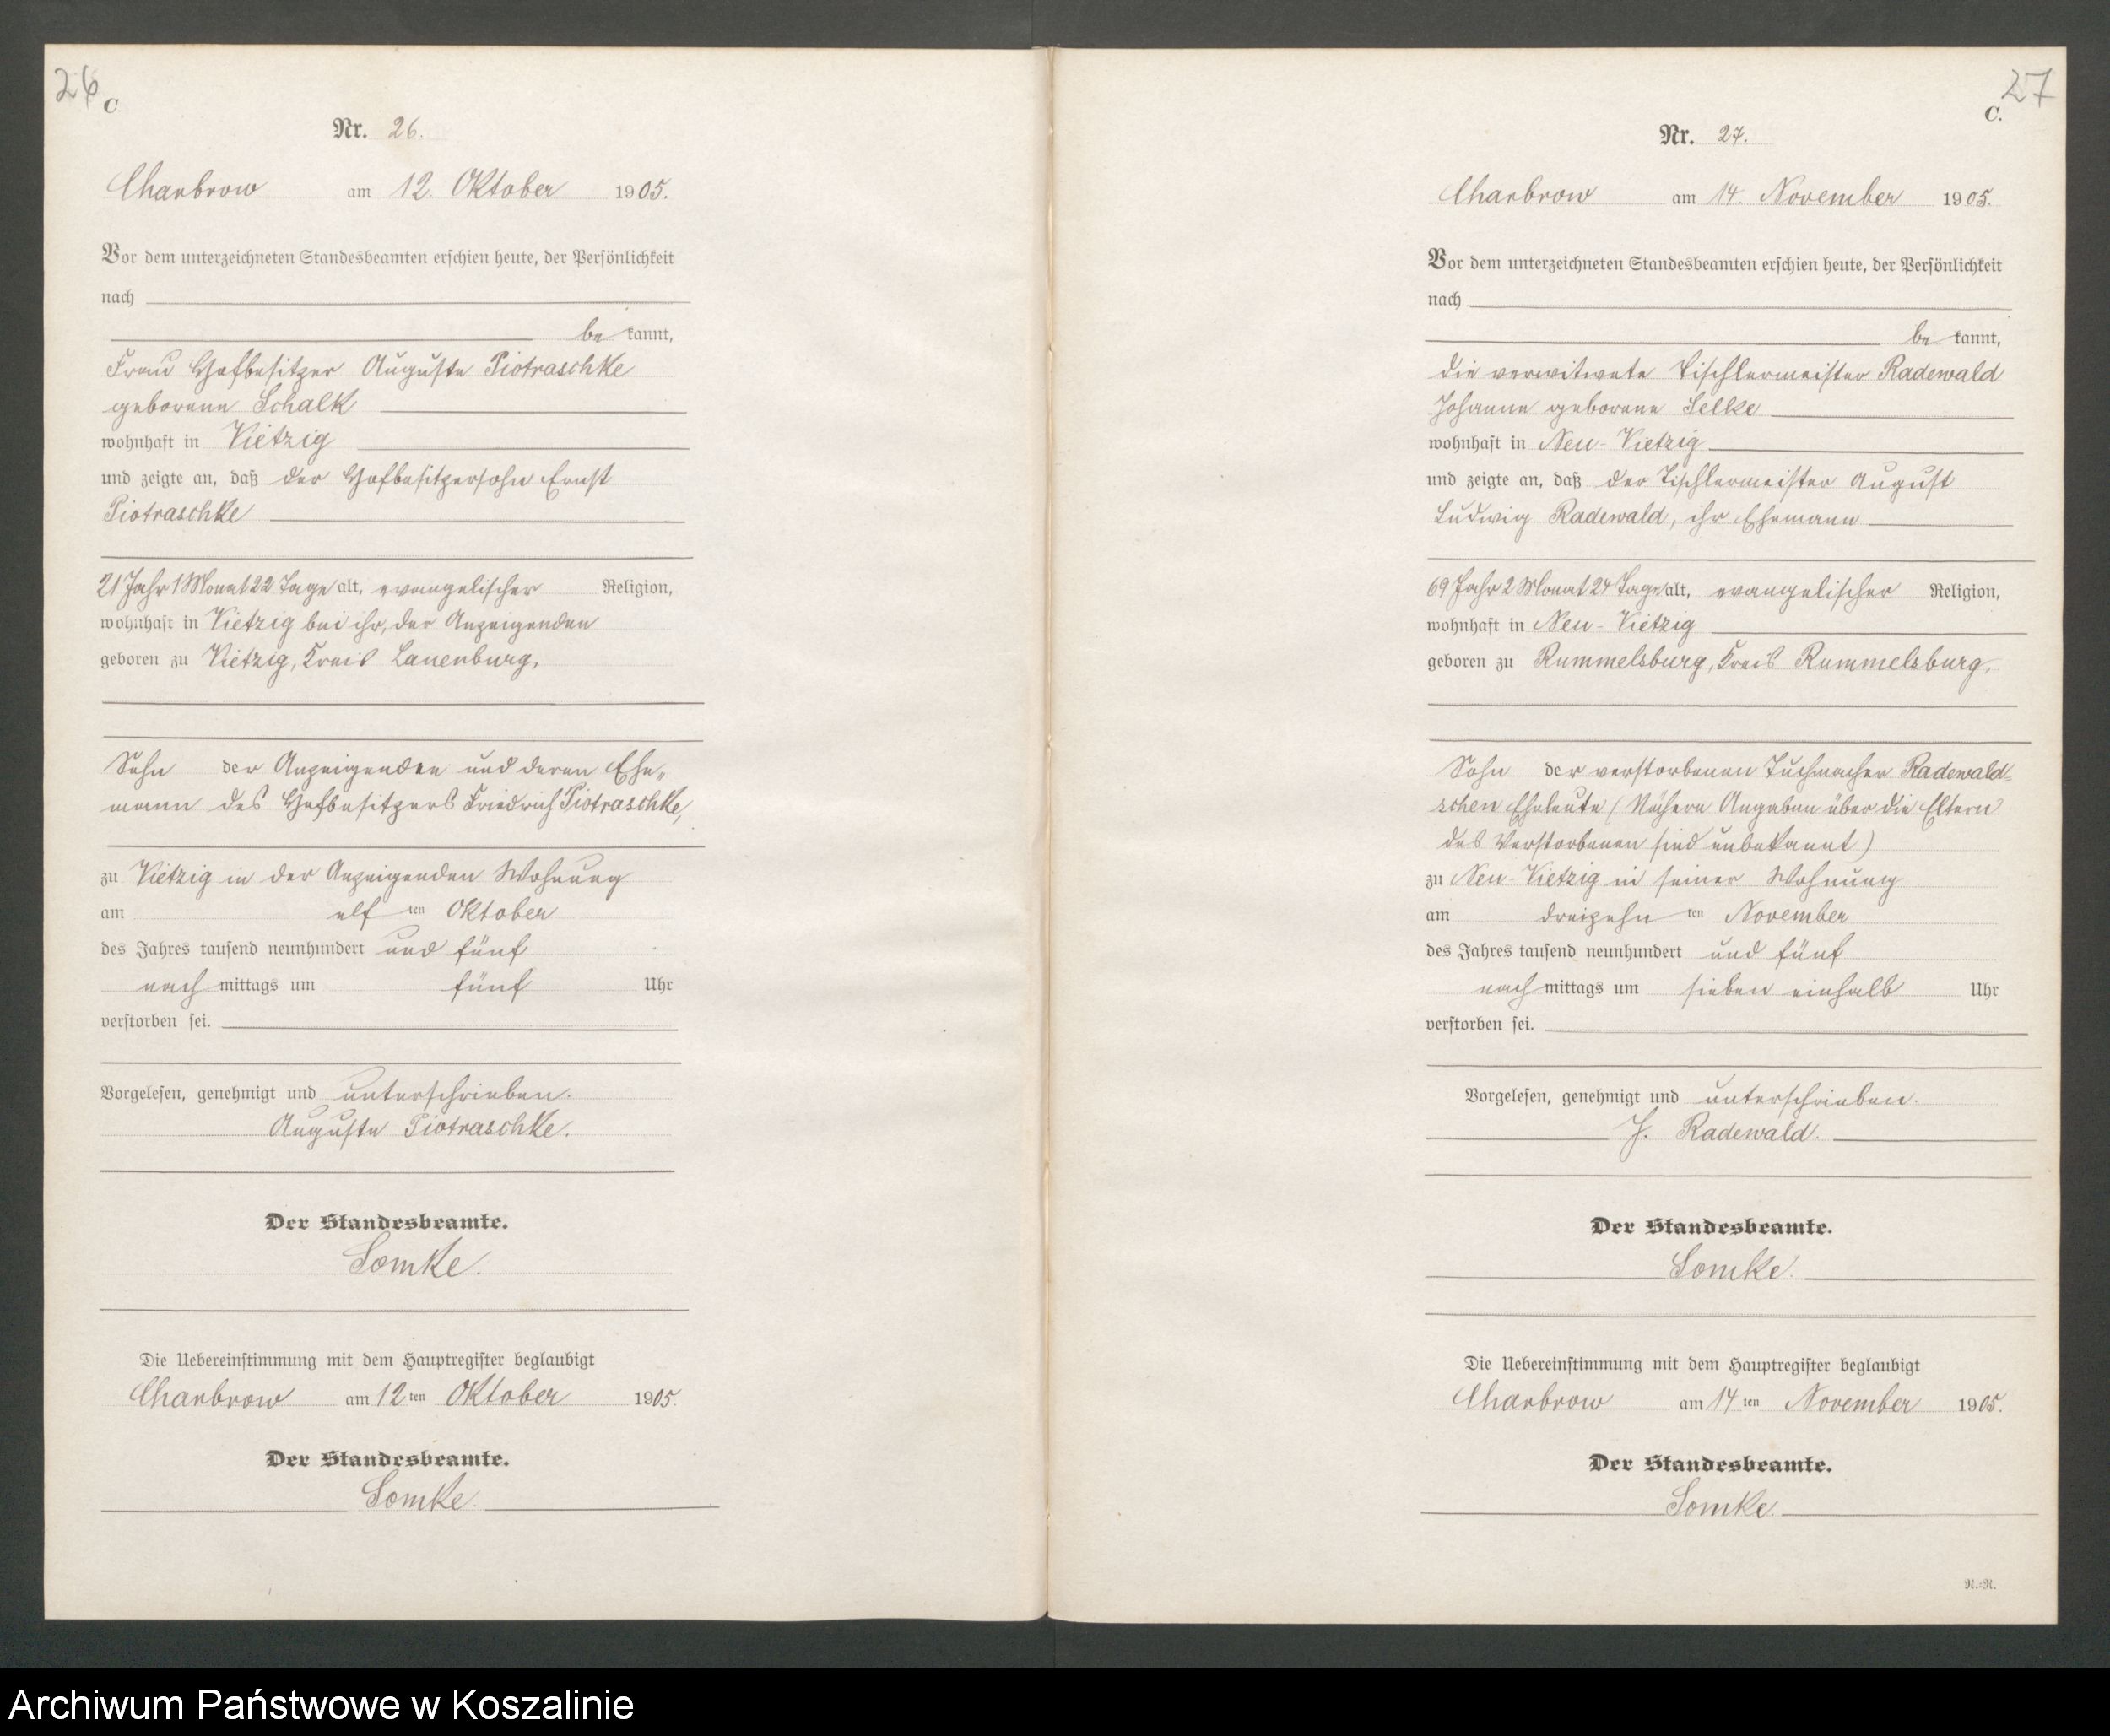 26
C
Nr. 26.
Charbrow am 12. Oktober 1905.
Vor dem unterzeichneten Standesbeamten erschien heute, der Persönlichkeit
nach
be kannt,
Frau Hofbesitzer Auguste Piotraschke
geborene Schalk
wohnhaft in Vietzig
und zeigte an, daß der Hofbesitzersohn Ernst
Piotraschke
21 Jahr 1 Monat 22 Tage alt, evangelischer Religion,
wohnhaft in Vietzig bei ihr, der Anzeigenden
geboren zu Vietzig, Kreis Lauenburg,
Sohn der Anzeigenden und deren Ehe-
mann des Hofbesitzers Friedrich Piotraschke,
zu Vietzig in der Anzeigenden Wohnung
am elf ten Oktober
des Jahres tausend neunhundert und fünf
nach mittags um fünf Uhr
verstorben sei.
Vorgelesen, genehmigt und unterschrieben.
Auguste Piotraschke.
Der Standesbeamte.
Lemke.
Die Uebereinstimmung mit dem Hauptregister beglaubigt
Charbrow am 12 ten Oktober 1905.
Der Standesbeamte.
Lemke.
27
C.
Nr. 27.
Charbrow am 14. November 1905.
Vor dem unterzeichneten Standesbeamten erschien heute, der Persönlichkeit
nach
be kannt,
die verwitwete Tischlermeister Radewald
Johanne geborene Selke
wohnhaft in Neu-Vietzig
und zeigte an, daß der Tischlermeister August
Ludwig Radewald, ihr Ehemann
69 Jahr 2 Monat 24 Tage alt, evangelischer Religion,
wohnhaft in Neu-Vietzig
geboren zu Rummelsburg, Kreis Rummelsburg,
Sohn der verstorbenen Tuchmacher Radewald-
schen Eheleute (Nähere Angaben über die Eltern
des Verstorbenen sind unbekannt)
zu Neu-Vietzig in seiner Wohnung
am dreizehn ten November
des Jahres tausend neunhundert und fünf
nach mittags um sieben einhalb Uhr
verstorben sei.
Vorgelesen, genehmigt und unterschrieben.
J. Radewald.
Der Standesbeamte.
Lemke.
Die Uebereinstimmung mit dem Hauptregister beglaubigt
Charbrow am 14 ten November 1905.
Der Standesbeamte.
Lemke.
N.-N.
Archiwum Państwowe w Koszalinie